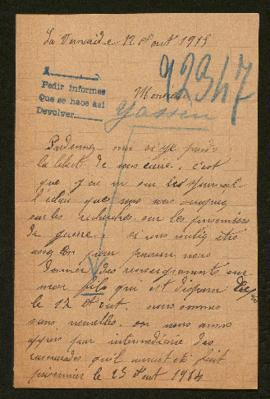 12 Aout 1915
A
Pedir informes
Que se hace asi
Devolver
92347
Monsieur
Pardonnez moi si je prends
la liberté de vous écrire, c'est
que j'ai vu sur les journal
l'idée que vous vous occupez
sur les recherches sur les prisonniers
de guerre si vous
bon pour pouvoir nous
donner des renseignements sur
mon fils qui est disparu
le 12 Aout. nous sommes
sans nouvelles on nous a
appris par intermédiaire des
camarades qu'il aurait été fait
prisonnier le 25 Aout 1914